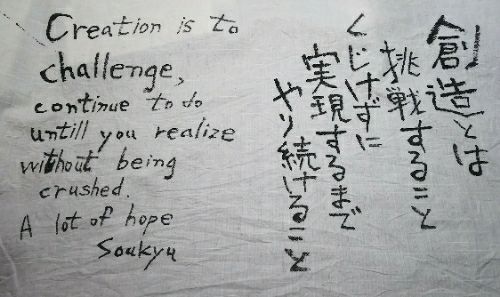 Creation is to
challenge,
continue to do
untill you realize
without being
crushed.
A lot of hope
Soukyu
創造とは
挑戦すること
くじけずに
実現するまで
やり続けること